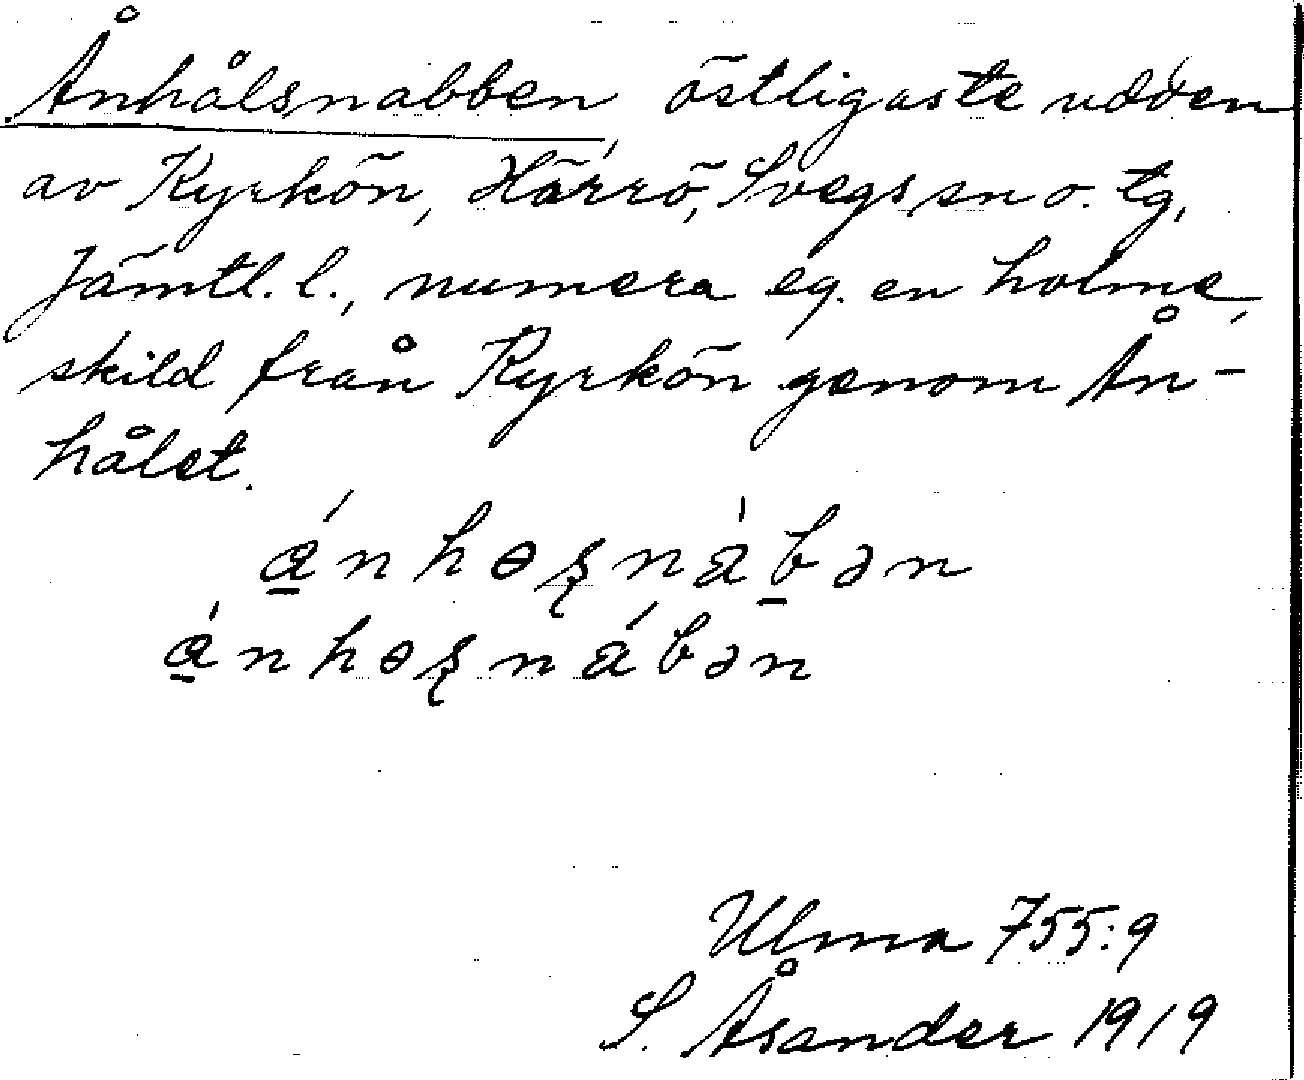 Ånhålsnabben, östligaste udden
av Kyrkön, Härrö, Svegs sn o. tg,
Jämtl. l., numera eg. en holme,
skild från Kyrkön genom Ån-
hålet.
á̱nhɵʂnàḇən
a̱̍nhɵʂnábən
Ulma 755:9
S. Åsander 1919